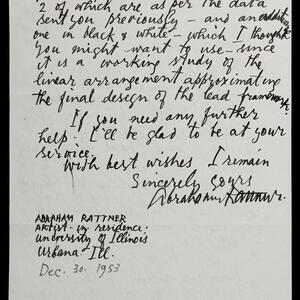 2 of which are as per the data
sent you previously - and an additional
one in black & white - which I thought
you might want to use - since
it is a working study of the
linear arrangement approximating
the final design of the lead framework.
If you need any further
help - I'll be glad to be at your
service.
With best wishes I remain
Sincerely yours
Abraham Rattner.
ABRAHAM RATTNER
Artist-in residence:
University of Illinois
Urbana. Ill.
Dec. 30. 1953